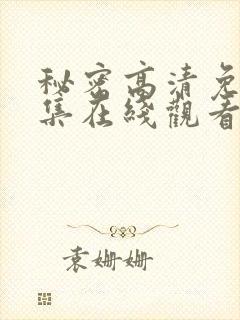 秘密高清免
集在綫觀看
袁姍姍